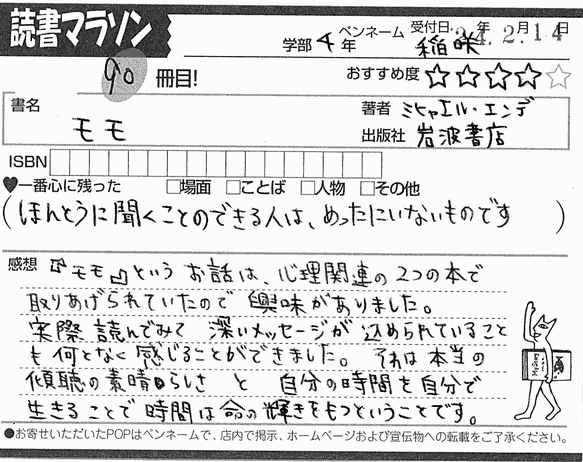 読書マラソン
学部 4 年
ペンネーム 稲咲
受付日 24年2月14日
90 冊目!
おすすめ度 ☆☆☆☆☆
書名 モモ
著者 ミヒャエル・エンデ
出版社 岩波書店
ISBN
♥一番心に残った □場面 □ことば □人物 □その他
(ほんとうに聞くことのできる人は、めったにいないものです)
感想 『モモ』という お話は、心理関連の2つの本で
取りあげられていたので 興味がありました。
実際 読んでみて 深いメッセージが 込められていること
も 何となく 感じることができました。 それは 本当の
傾聴の素晴らしさ と 自分の時間を自分で
生きることで 時間は命の輝きをもつということです。
●お寄せいただいたPOPはペンネームで、店内で掲示、ホームページおよび宣伝物への転載をご了承ください。